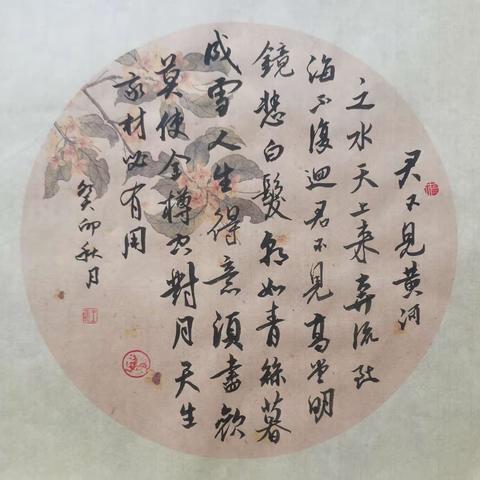 君不見黄河
之水天上来奔流到
海不復迴君不見高堂明
鏡悲白髮朝如青絲暮
成雪人生得意須盡歡
莫使金樽空對月天生
我材必有用
癸卯秋月